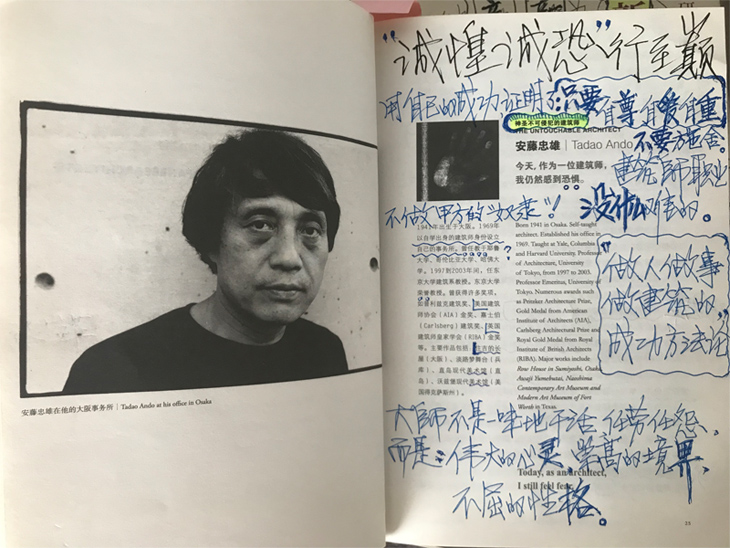 安藤忠雄在他的大阪事务所｜Tadao Ando at his office in Osaka
“诚惶诚恐”行至巅
用自己的成功证明了:只要
神圣不可侵犯的建筑师
THE UNTOUCHABLE ARCHITECT
安藤忠雄｜Tadao Ando
不要
今天，作为一位建筑师，
我仍然感到恐惧。
建筑师职业
不做“甲方的“奴隶”！
没什么 的。
1941年出生于大阪。1969年
以自学出身的建筑师身份设立
自己的事务所。曾任教于耶鲁
大学、哥伦比亚大学、哈佛大
学。1997到2003年间，任东
京大学建筑系教授。东京大学
荣誉教授。曾获得许多奖项，
普利兹克建筑奖、美国建筑
师协会（AIA）金奖、嘉士伯
（Carlsberg）建筑奖、英国
建筑师皇家学会（RIBA）金奖
等。主要作品包括：住吉的长
屋（大阪）、淡路梦舞台（兵
库）、直岛现代美术馆（直
岛）、沃兹堡现代美术馆（美
国得克萨斯州）。
Born 1941 in Osaka. Self-taught
architect. Established his office in
1969. Taught at Yale, Columbia
and Harvard University. Professor
of Architecture, University
of Tokyo, from 1997 to 2003.
Professor Emeritus, University of
Tokyo. Numerous awards such
as Pritzker Architecture Prize,
Gold Medal from American
Institute of Architects (AIA),
Carlsberg Architectural Prize and
Royal Gold Medal from Royal
Institute of British Architects
(RIBA). Major works include
Row House in Sumiyoshi, Osaka,
Awaji Yumebutai, Naoshima
Contemporary Art Museum and
Modern Art Museum of Fort
Worth in Texas.
“做人做事
做建筑的”
成功方法论
大师不是一味地干活 任劳任怨，
而是:伟大的心灵，崇高的境界，
Today, as an architect,
I still feel fear.
不屈的性格。